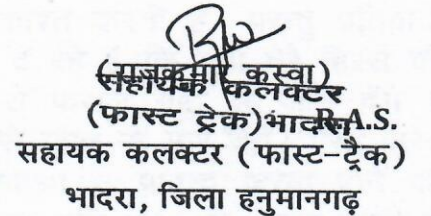 (राजकुमार कस्वा)
सहायक कलक्टर
(फास्ट ट्रेक) भादरा R.A.S.
सहायक कलक्टर (फास्ट-ट्रैक)
भादरा, जिला हनुमानगढ़